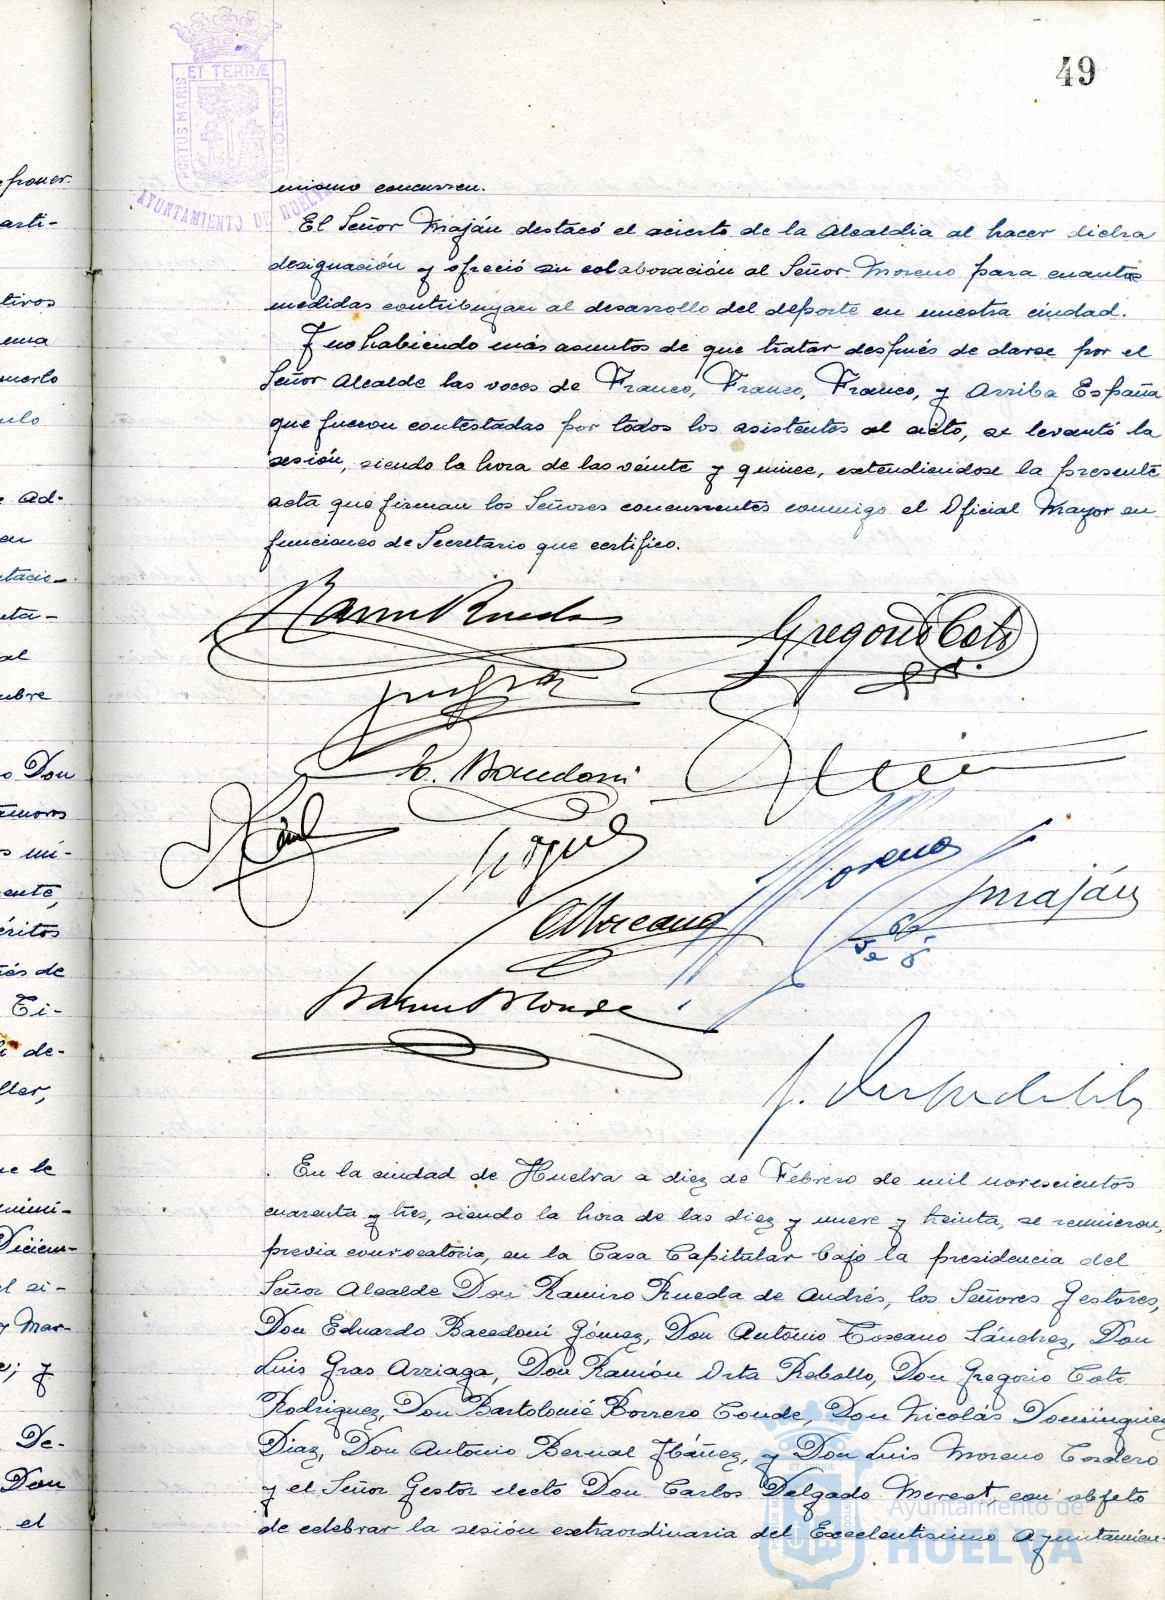 49
ET TERRÆ
PORTUS MARIS
CUSTODI
AYUNTAMIENTO DE HUELVA
mismo concurren.
El Señor Maján destacó el acierto de la Alcaldia al hacer dicha
designación y ofreció su colaboración al Señor Moreno para cuantas
medidas contribuyan al desarrollo del deporte en nuestra ciudad.
Y no habiendo más asuntos de que tratar después de darse por el
Señor Alcalde las voces de Franco, Franco, Franco, y Arriba España
que fueron contestadas por todos los asistentes al acto, se levantó la
sesión, siendo la hora de las veinte y quince, extendiendose la presente
acta que firman los Señores concurrentes conmigo el Oficial Mayor en
funciones de Secretario que certifico.
Gregorio Coto
Moreno
Maján
En la ciudad de Huelva a diez de Febrero de mil novescientos
cuarenta y tres, siendo la hora de las diez y nueve y treinta, se reunieron,
previa convocatoria, en la Casa Capitular bajo la presidencia del
Señor Alcalde Don Ramiro Rueda de Andrés, los Señores Gestores,
Don Eduardo Bacedoni Gómez, Don Antonio Toscano Sánchez, Don
Luis Gras Arriaga, Don Ramón Orta Rebollo, Don Gregorio Coto
Rodriguez, Don Bartolomé Borrero Conde, Don Nicolás Dominguez
Diaz, Don Antonio Bernal Ibáñez, y Don Luis Moreno Cordero
y el Señor Gestor electo Don Carlos Delgado Merest con objeto
de celebrar la sesión extraordinaria del Excelentisimo Ayuntamien-
Ayuntamiento de
HUELVA